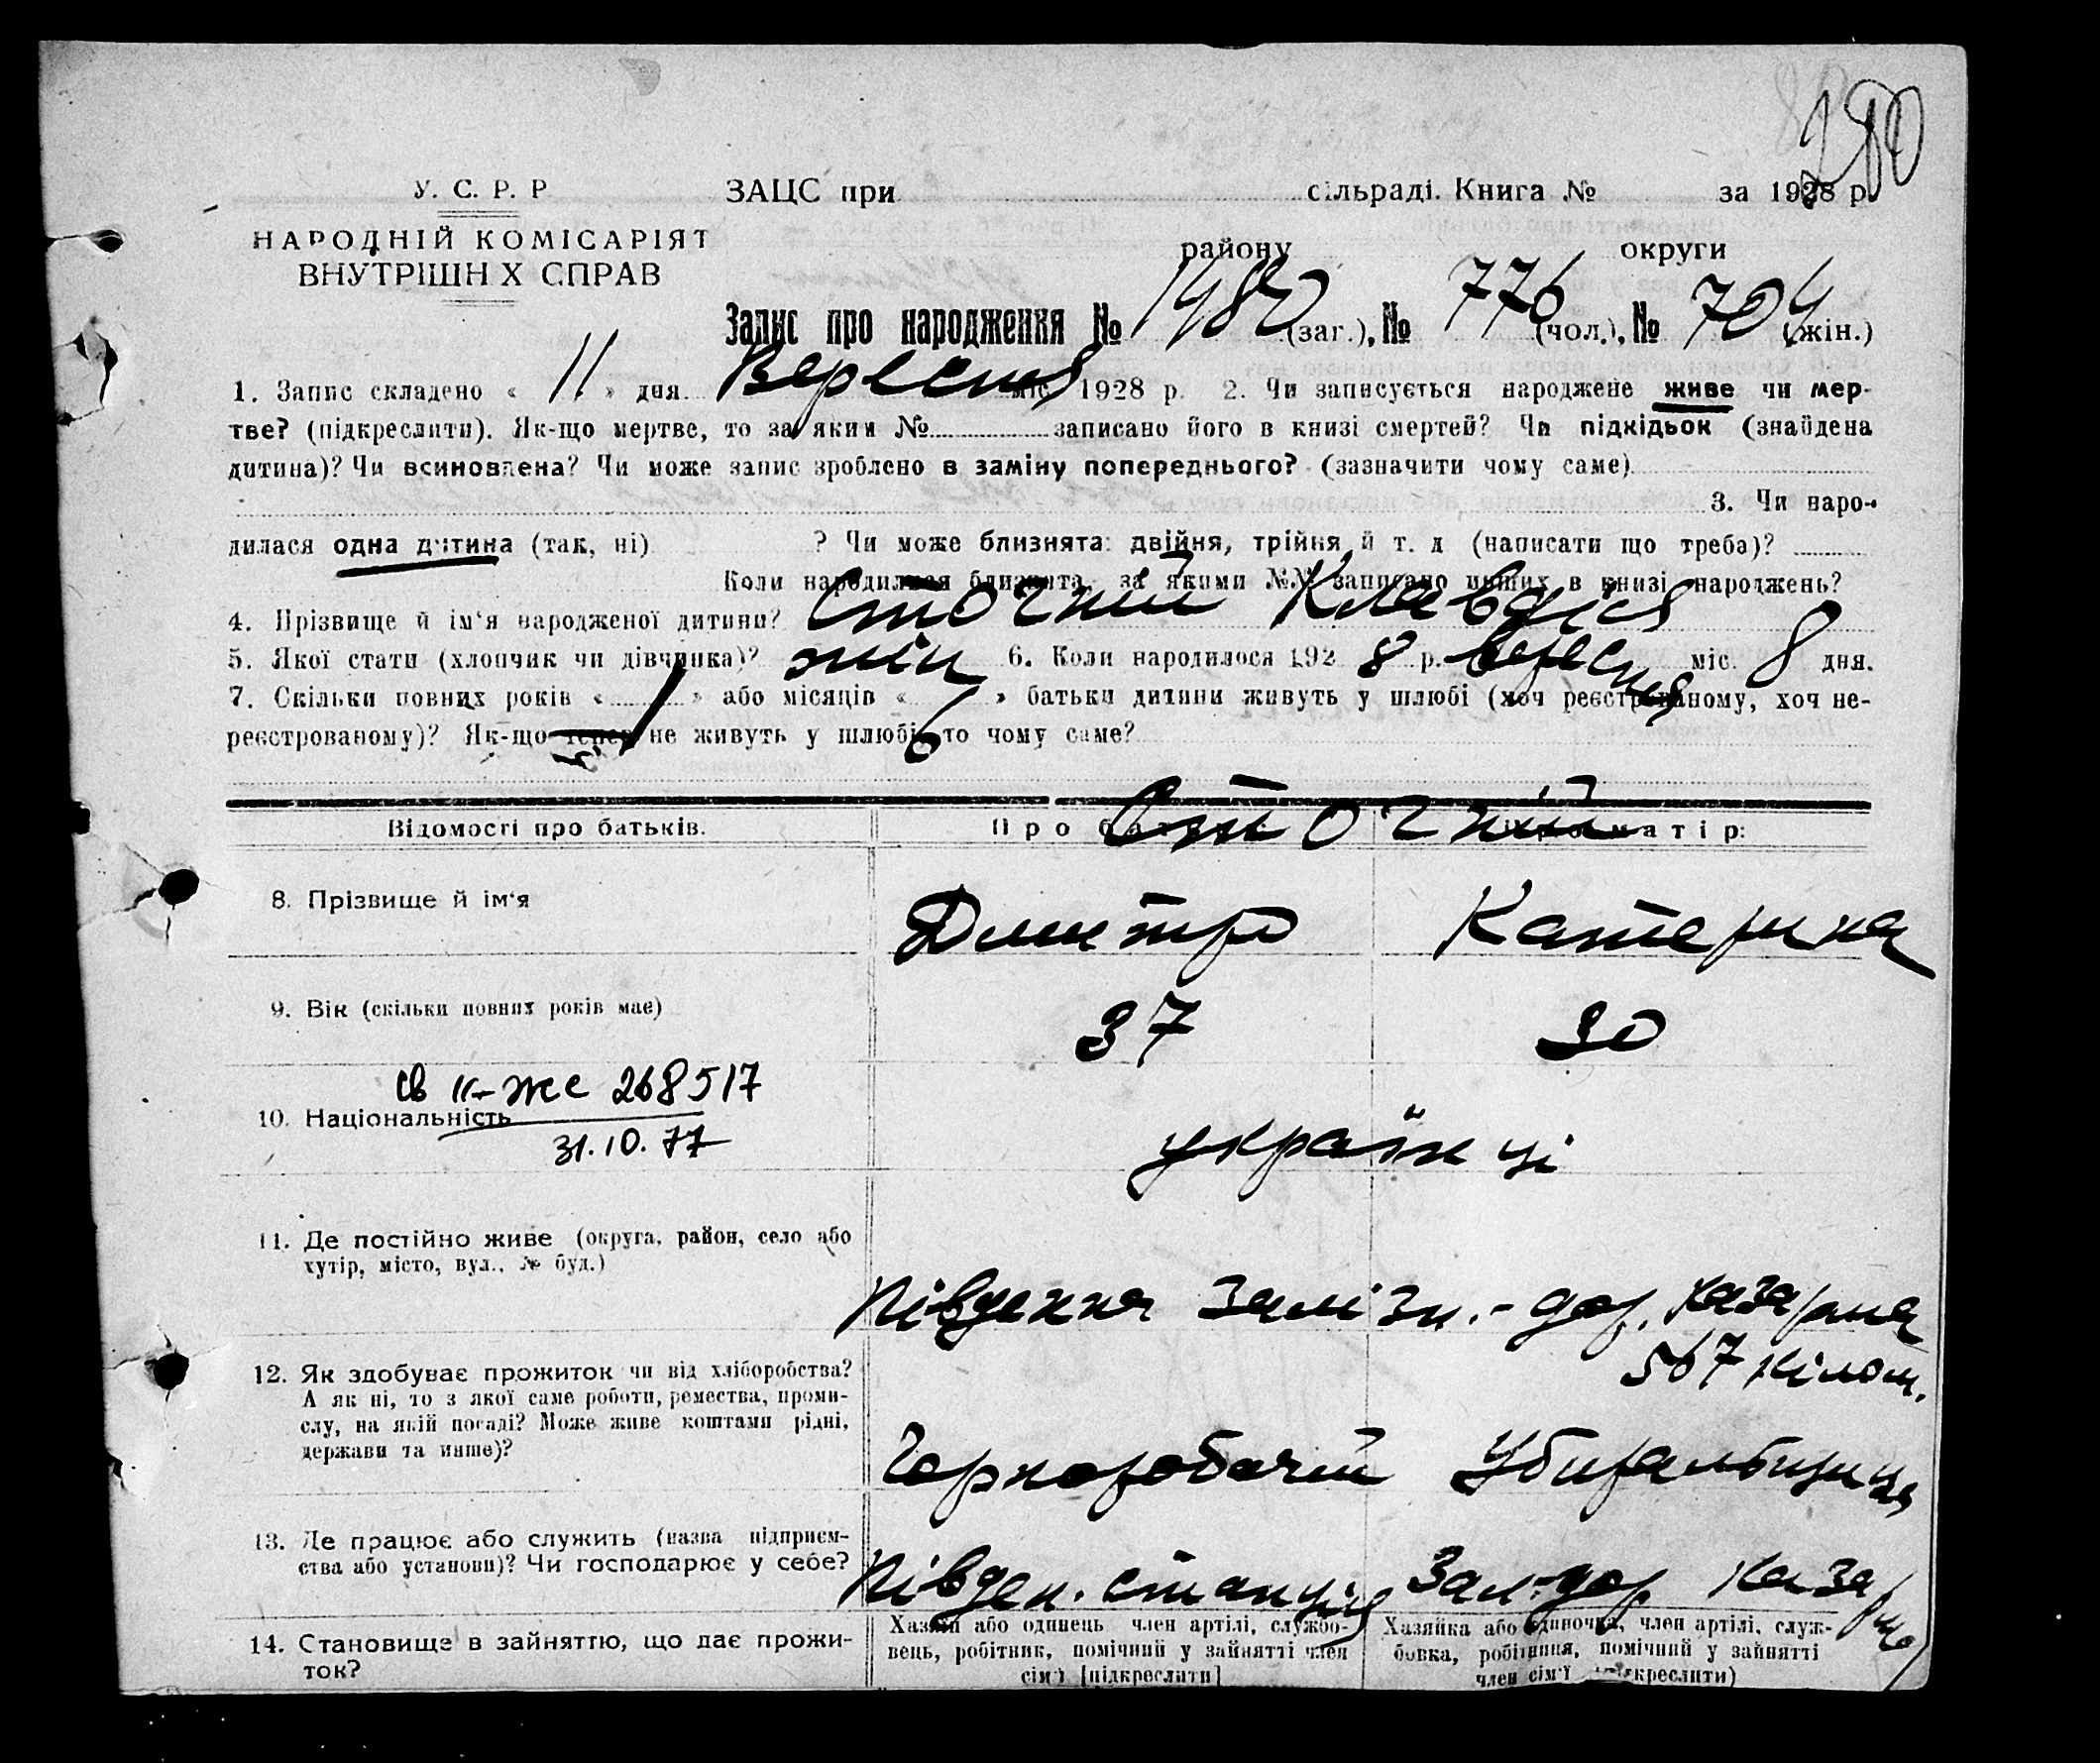 280
У. С. Р. Р ЗАЦС при сільраді. Книга № за 1928 р.
НАРОДНІЙ КОМІСАРІЯТ району округи
ВНУТРІШНІХ СПРАВ
Запис про народження № 1480 (заг.), № 776 (чол.), № 704 (жін.)
1. Запис складено « 11 » дня Вересня міс. 1928 р. 2. Чи записується народжене живе чи мер-
тве? (підкреслити). Як-що мертве, то за яким № записано його в книзі смертей? Чи підкідьок (знайдена
дитина)? Чи всиновлена? Чи може запис зроблено в заміну попереднього? (зазначити чому саме)
3. Чи наро-
дилася одна дитина (так, ні) ? Чи може близнята: двійня, трійня й т. д (написати що треба)?
Коли народилися близнята, за якими №№ записано инших в книзі народжень?
4. Прізвище й ім'я народженої дитини? Сточний Клавдія
5. Якої стати (хлопчик чи дівчинка)? жін 6. Коли народилося 192 8 р. вересня міс. 8 дня.
7. Скільки повних років « » або місяців « » батьки дитини живуть у шлюбі (хоч реєстрованому, хоч не-
реєстрованому)? Як-що тепер не живуть у шлюбі, то чому саме?
Сточний
Відомості про батьків. Про батька: Про матір:
8. Прізвище й ім'я Дмитро Катерина
9. Вік (скільки повних років має) 37 30
св II-ЖС 268517
10. Національність українці
31.10.77
11. Де постійно живе (округа, район, село або
хутір, місто, вул., № буд.)
Південна Залізн.-дор. Казарма
567 кілом.
12. Як здобуває прожиток чи від хліборобства?
А як ні, то з якої саме роботи, ремества, проми-
слу, на якій посаді? Може живе коштами рідні,
держави та инше)?
Чорноробочий Убиральниця
13. Де працює або служить (назва підприєм-
ства або установи)? Чи господарює у себе?
Півден. станція Зал-дор Казарма
14. Становище в зайняттю, що дає прожи-
ток?
Хазяїн або одинець член артілі, службо-
вець, робітник, помічний у зайнятті член
сім'ї [підкреслити]
Хазяйка або одиночка, член артілі, служ-
бовка, робітниця, помічний у зайнятті
член сім'ї підкреслити)